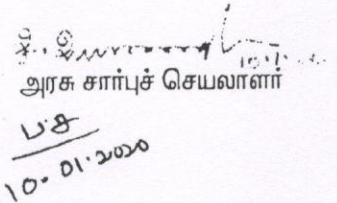 10.1.
அரசு சார்புச் செயலாளர்
ப.ச
10.01.2020